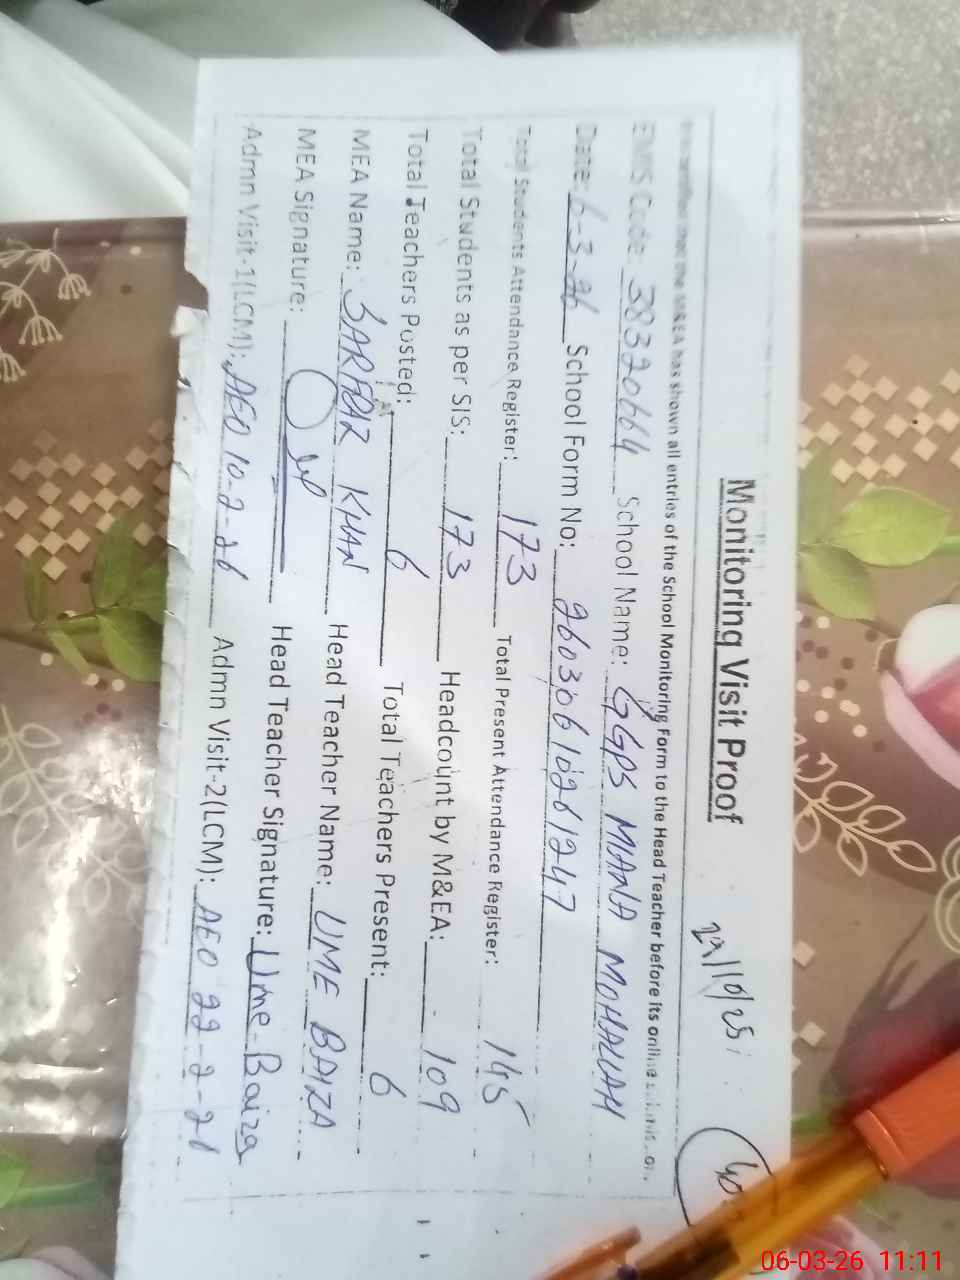 Monitoring Visit Proof 29/10/25
has shown all entries of the School Monitoring Form to the Head Teacher before its online
EMIS Code: 38320664 School Name: GGPS MIANA MOHALLAH
Date: 6-3-26 School Form No: 26030610261247
Total Students Attendance Register: 173 Total Present Attendance Register: 145
Total Students as per SIS: 173 Headcount by M&EA: 109
Total Teachers Posted: 6 Total Teachers Present: 6
MEA Name: SARFRAZ KHAN Head Teacher Name: UME BAIZA
MEA Signature: Head Teacher Signature: Ume-Baiza
Admn Visit-1(LCM): AEO 10-2-26 Admn Visit-2(LCM): AEO 22-2-26
06-03-26 11:11